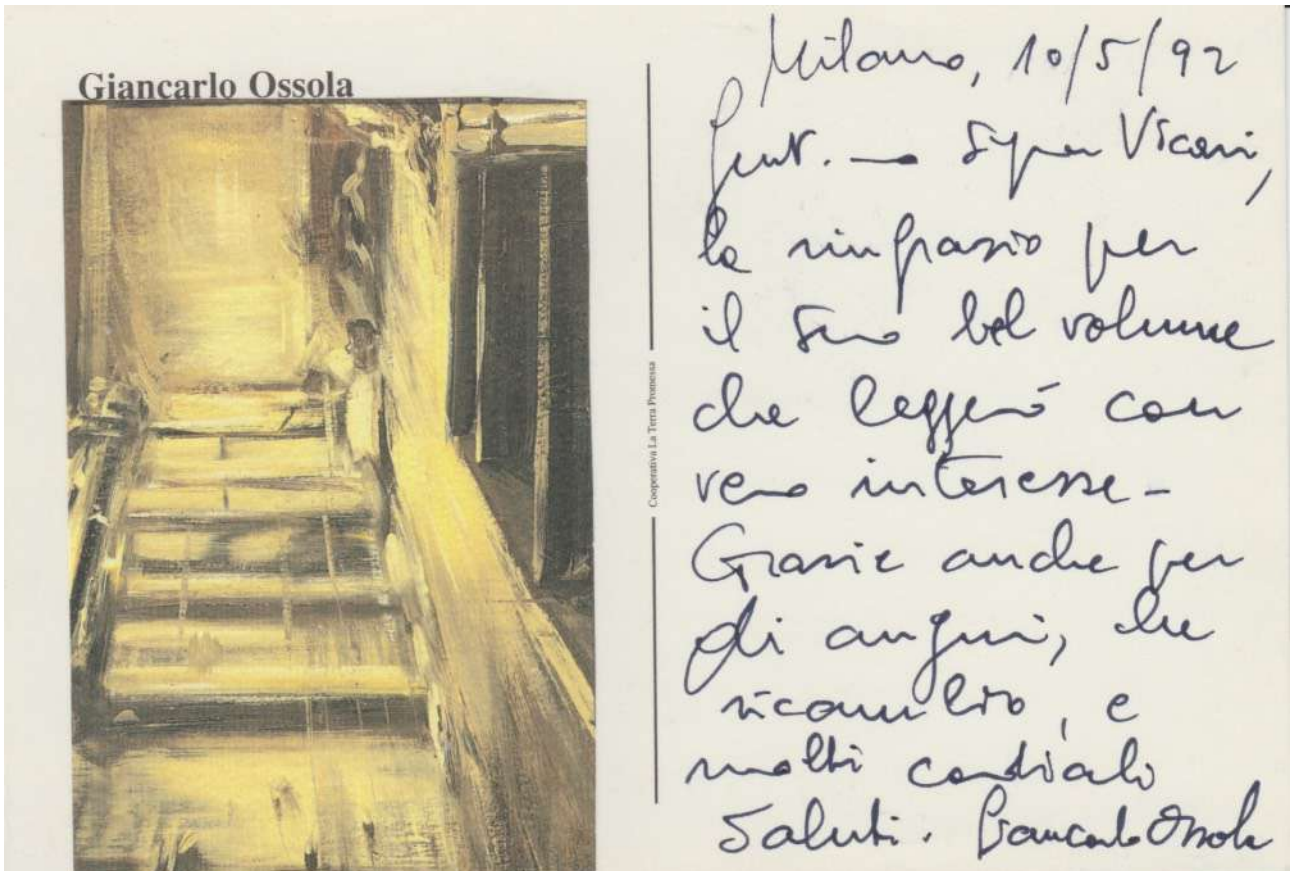 Giancarlo Ossola
Cooperativa La Terra Promessa
Milano, 10/5/92
Gent.mo Signor Vicari,
la ringrazio per
il suo bel volume
che leggerò con
vero interesse -
Grazie anche per
gli auguri, che
ricambio, e
molti cordiali
saluti. Giancarlo Ossola